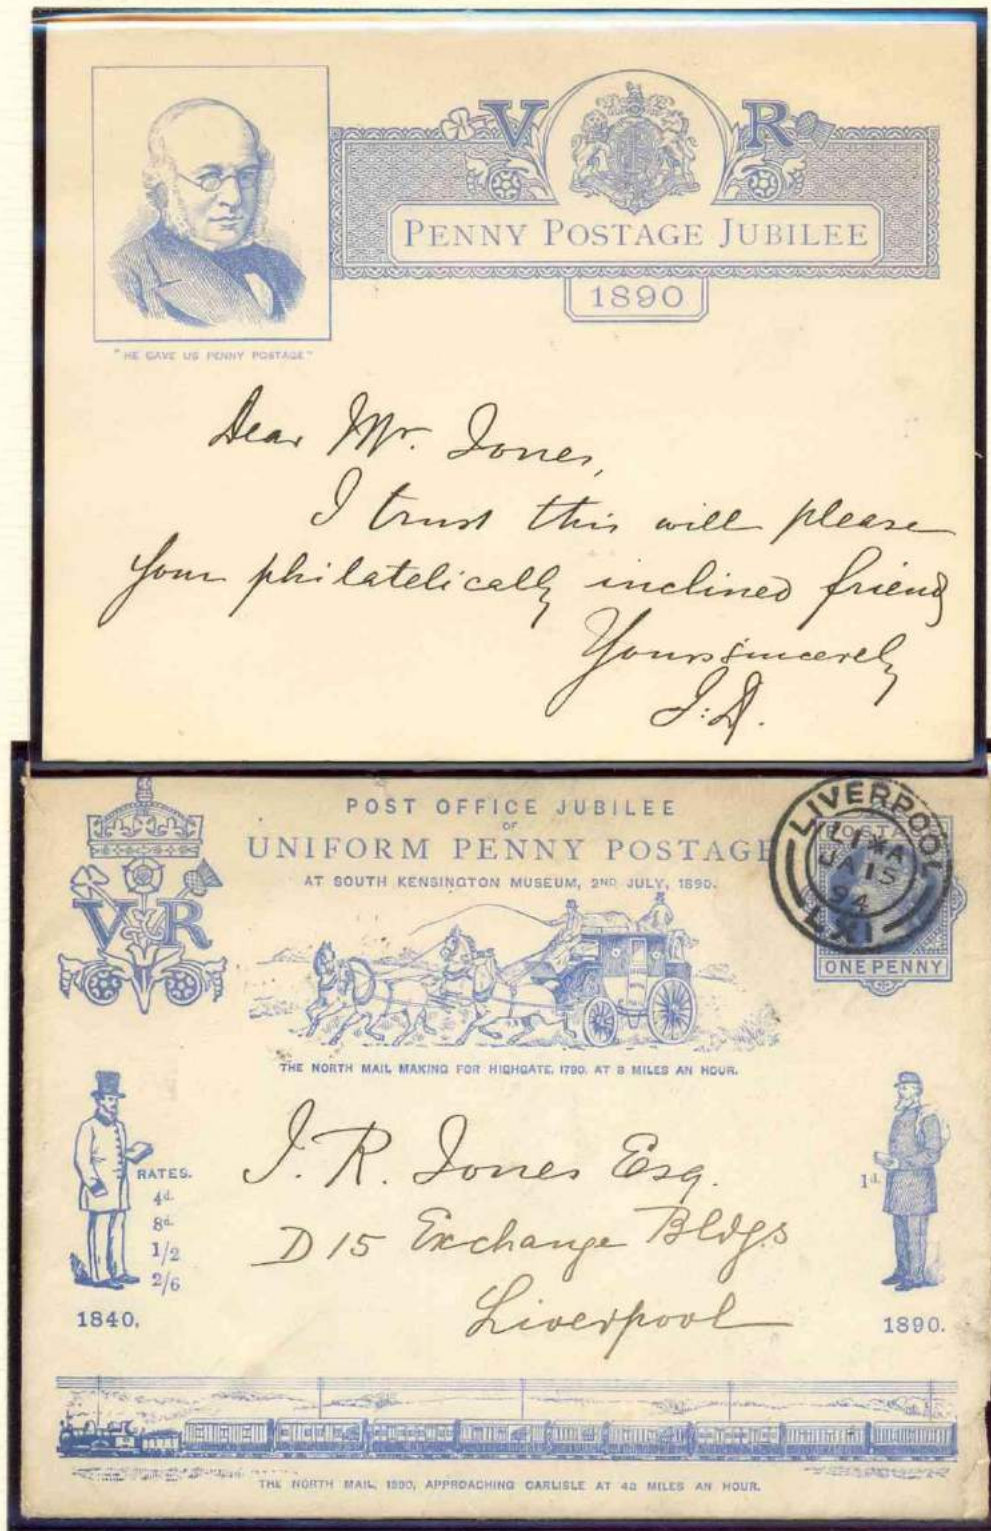 V R
PENNY POSTAGE JUBILEE
1890
"HE GAVE US PENNY POSTAGE"
Dear Mr. Jones,
I trust this will please
your philatelically inclined friend
Yours sincerely
J:D.
POST OFFICE JUBILEE
OF
UNIFORM PENNY POSTAGE
AT SOUTH KENSINGTON MUSEUM, 2ND JULY, 1890.
V R
LIVERPOOL
JA 15
94
LXI
ONE PENNY
THE NORTH MAIL MAKING FOR HIGHGATE, 1790, AT 8 MILES AN HOUR.
J. R. Jones Esq.
D 15 Exchange Bldgs
Liverpool
RATES.
4d.
8d.
1/2
2/6
1840.
1d.
1890.
THE NORTH MAIL, 1890, APPROACHING CARLISLE AT 48 MILES AN HOUR.